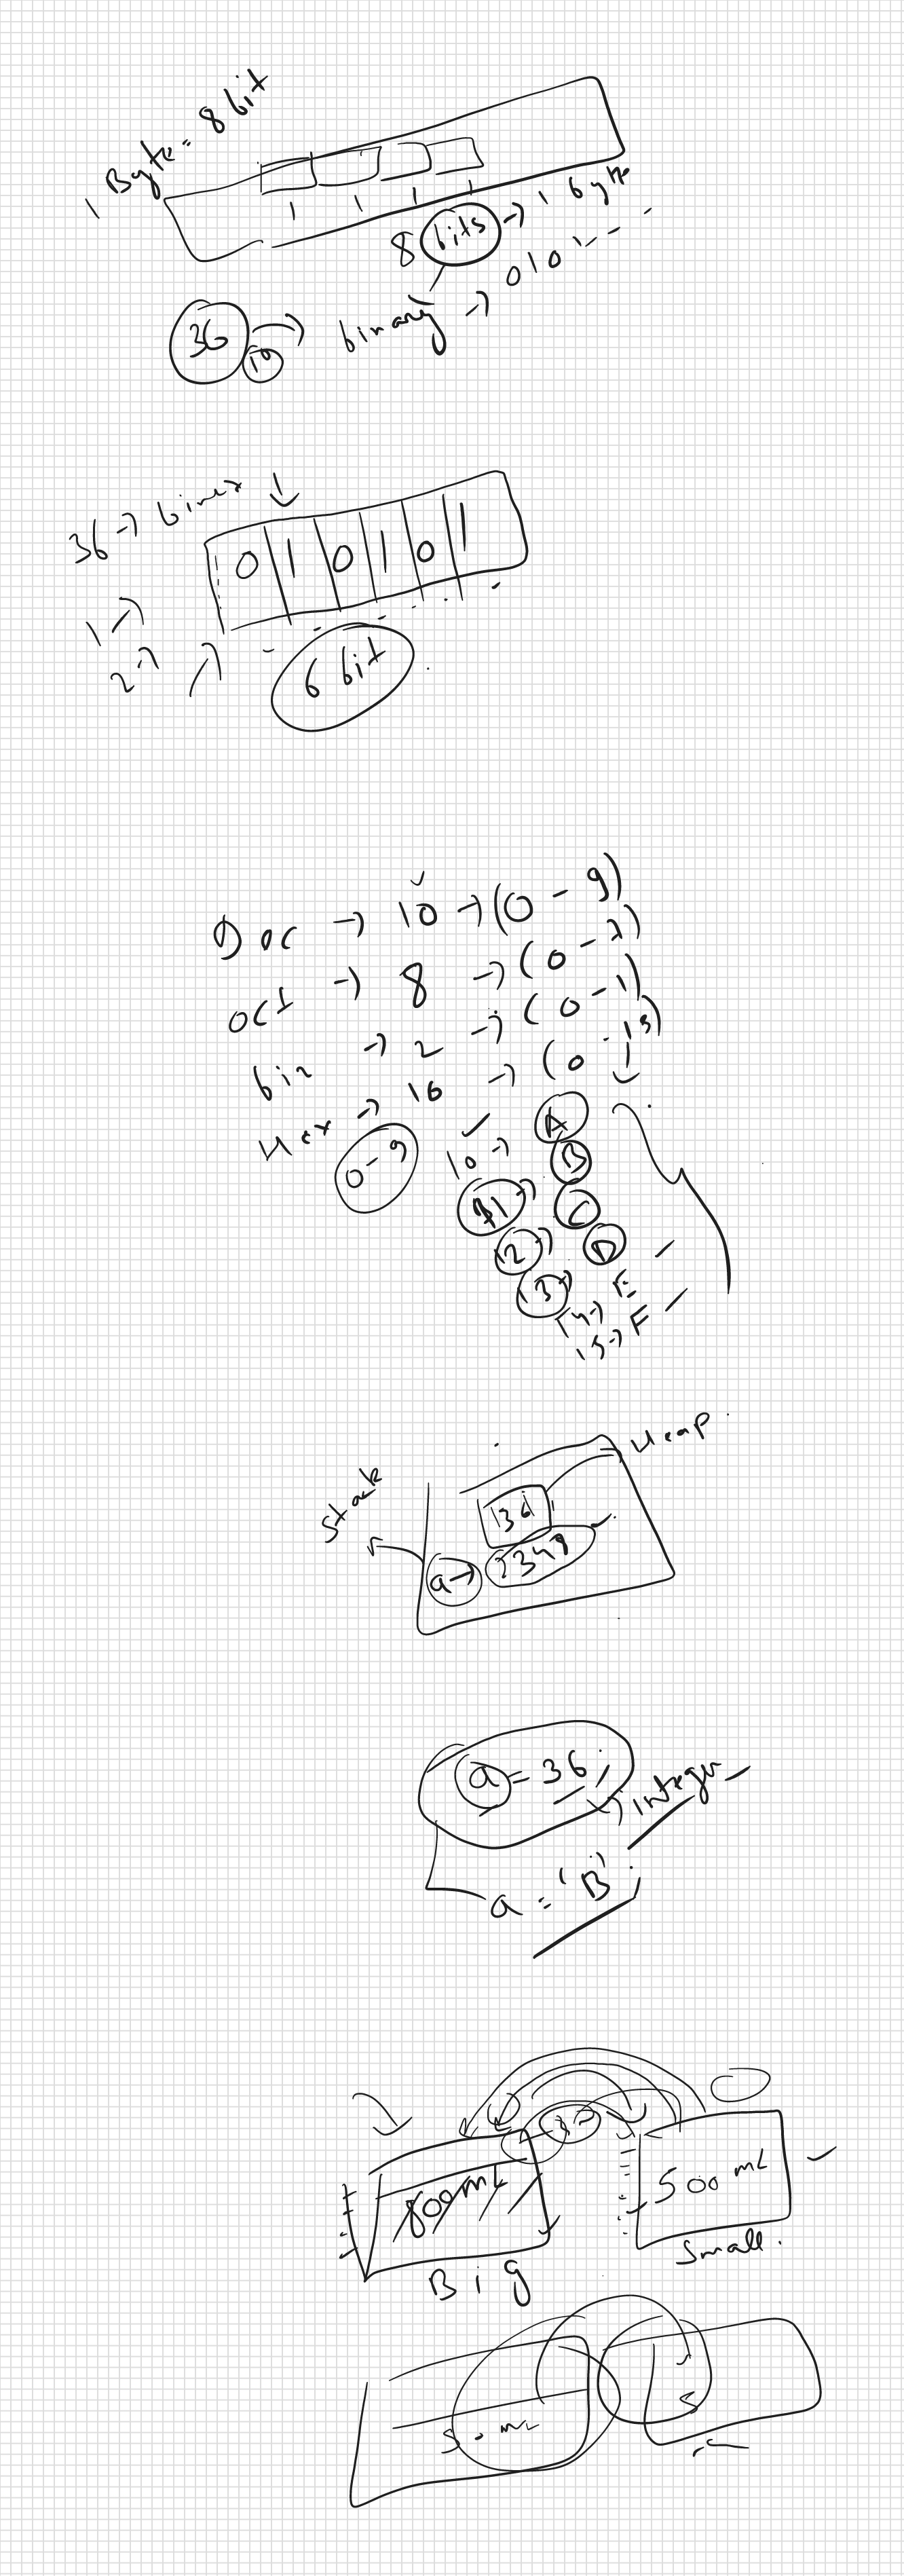 1 Byte = 8 bit
1 1 1 1
8 bits → 1 byte
36 10 → binary → 0101---
36 → binary
0 1 0 1 0 1
1 →
2 →
6 bit
Dec → 10 → (0 - 9)
oct → 8 → (0 - 7)
bin → 2 → (0 - 1)
Hex → 16 → (0 - 15)
0-9 10 → A
11 → B
12 → C
13 → D
14 → E
15 → F
Heap
Stack
36
a →
a = 36; → integer
a = 'B';
800 mL
500 mL
Small.
Big